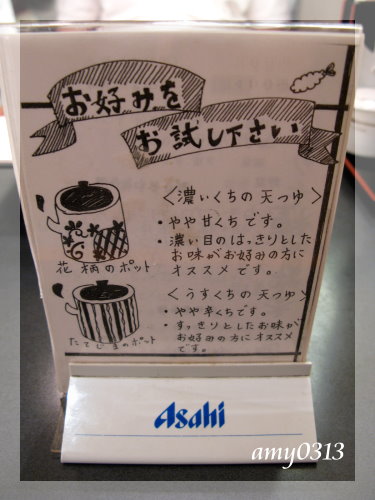 お好みを
お試し下さい
〈濃いくちの天つゆ〉
・やや甘くちです。
・濃い目のはっきりとした
お味がお好みの方に
オススメです。
花柄のポット
〈うすくちの天つゆ〉
・やや辛くちです。
・すっきりとしたお味が
お好みの方にオススメ
です。
たてじまのポット
Asahi
amy0313